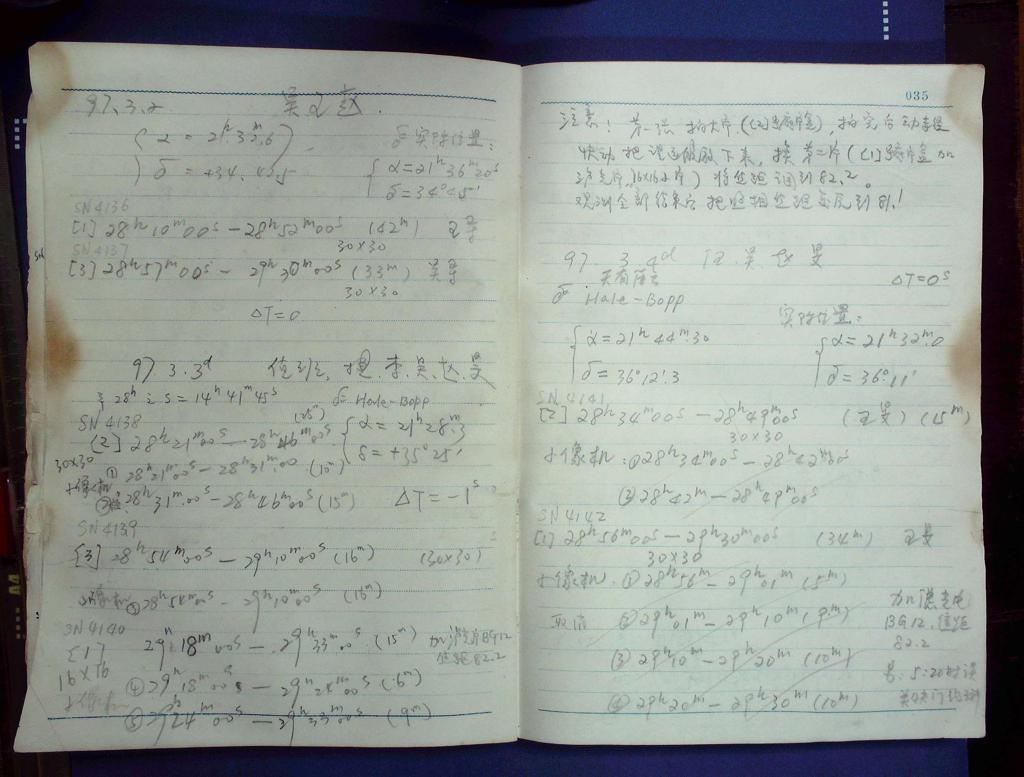 97.3.2
α = 21ʰ33ᵐ.6
δ = +34°.45
实际位置:
α=21ʰ36ᵐ20ˢ
δ=34°45′
SN4136
[1] 28ʰ10ᵐ00ˢ — 28ʰ52ᵐ00ˢ (42ᵐ)
30×30
SN4137
[3] 28ʰ57ᵐ00ˢ — 29ʰ30ᵐ00ˢ (33ᵐ)
30×30
ΔT=0
97.3.3ᵈ 值班: 李.吴.赵.
28ʰ S=14ʰ41ᵐ45ˢ Hale-Bopp
SN4138 (25ᵐ)
[2] 28ʰ21ᵐ00ˢ — 28ʰ46ᵐ00ˢ
α=21ʰ28ᵐ.3
δ=+35°25′
30×30 ① 28ʰ21ᵐ00 — 28ʰ31ᵐ00 (10ᵐ)
② 28ʰ31ᵐ00ˢ — 28ʰ46ᵐ00ˢ (15ᵐ) ΔT=−1ˢ
SN4139
[3] 28ʰ54ᵐ00ˢ — 29ʰ10ᵐ00ˢ (16ᵐ) (30×30)
③ 28ʰ54ᵐ00ˢ — 29ʰ10ᵐ00ˢ (16ᵐ)
SN4140
[1] 29ʰ18ᵐ00ˢ — 29ʰ33ᵐ00ˢ (15ᵐ) 加 BG12
82.2
16×16
④ 29ʰ18ᵐ00ˢ — 29ʰ24ᵐ00ˢ (6ᵐ)
⑤ 29ʰ24ᵐ00ˢ — 29ʰ33ᵐ00ˢ (9ᵐ)
035
注意! 第一张 拍大片, ([2]号暗盒), 拍完后
快动 把 放下来, 换第二片 ([1]号暗盒加
滤光片, 16×16小片) 将焦距调到82.2。
观测全部结束后 把照相焦距 到81.!
97. 3. 4ᵈ 吴 赵
天有薄云 ΔT=0ˢ
Hale-Bopp
实际位置:
α=21ʰ44ᵐ.30
δ=36°12′.3
α=21ʰ32ᵐ.0
δ=36°11′
SN4141
[2] 28ʰ34ᵐ00ˢ — 28ʰ49ᵐ00ˢ (15ᵐ)
30×30
①28ʰ34ᵐ00ˢ — 28ʰ42ᵐ00ˢ
②28ʰ42ᵐ — 28ʰ49ᵐ00ˢ
SN4142
[1] 28ʰ56ᵐ00ˢ — 29ʰ30ᵐ00ˢ (34ᵐ)
30×30
① 28ʰ56ᵐ — 29ʰ01ᵐ (5ᵐ)
取消 ② 29ʰ01ᵐ — 29ʰ10ᵐ (9ᵐ)
加滤光片
BG12, 焦距
82.2
③ 29ʰ10ᵐ — 29ʰ20ᵐ (10ᵐ)
④ 29ʰ20ᵐ — 29ʰ30ᵐ (10ᵐ)
5:20时